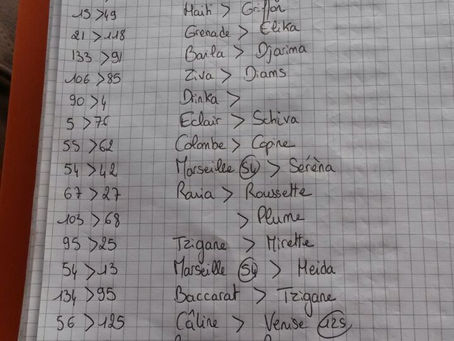 15 > 49 Haïti > Griffon
21 > 118 Grenade > Elika
133 > 91 Baïla > Djarima
106 > 85 Ziva > Diams
90 > 4 Dinka >
5 > 76 Eclair > Schiva
55 > 62 Colombe > Copine
54 > 42 Marseille 54 > Séréna
67 > 27 Rania > Roussette
103 > 68 > Plume
95 > 25 Tzigane > Mirette
54 > 13 Marseille 54 > Meida
134 > 95 Baccarat > Tzigane
56 > 125 Câline > Venise 125